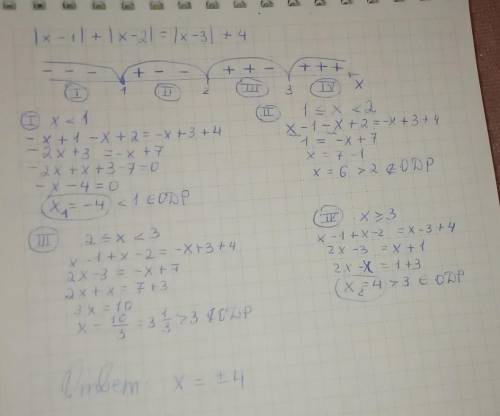 |x-1| + |x-2| = |x-3| + 4
- - - + - - + + - + + +
I 1 II 2 III 3 IV x
I x < 1
-x+1 -x+2 = -x+3+4
-2x+3 = -x+7
-2x+x+3-7=0
-x-4=0
x₁ = -4 < 1 ∈ ODP
II 1 ≤ x < 2
x-1-x+2=-x+3+4
1 = -x+7
x = 7-1
x = 6 > 2 ∉ ODP
III 2 ≤ x < 3
x-1+x-2 = -x+3+4
2x-3 = -x+7
2x+x = 7+3
3x = 10
x = 10/3 = 3 1/3 > 3 ∉ ODP
IV x ≥ 3
x-1+x-2 = x-3+4
2x-3 = x+1
2x-x = 1+3
x₂=4 > 3 ∈ ODP
Ответ: x = ±4